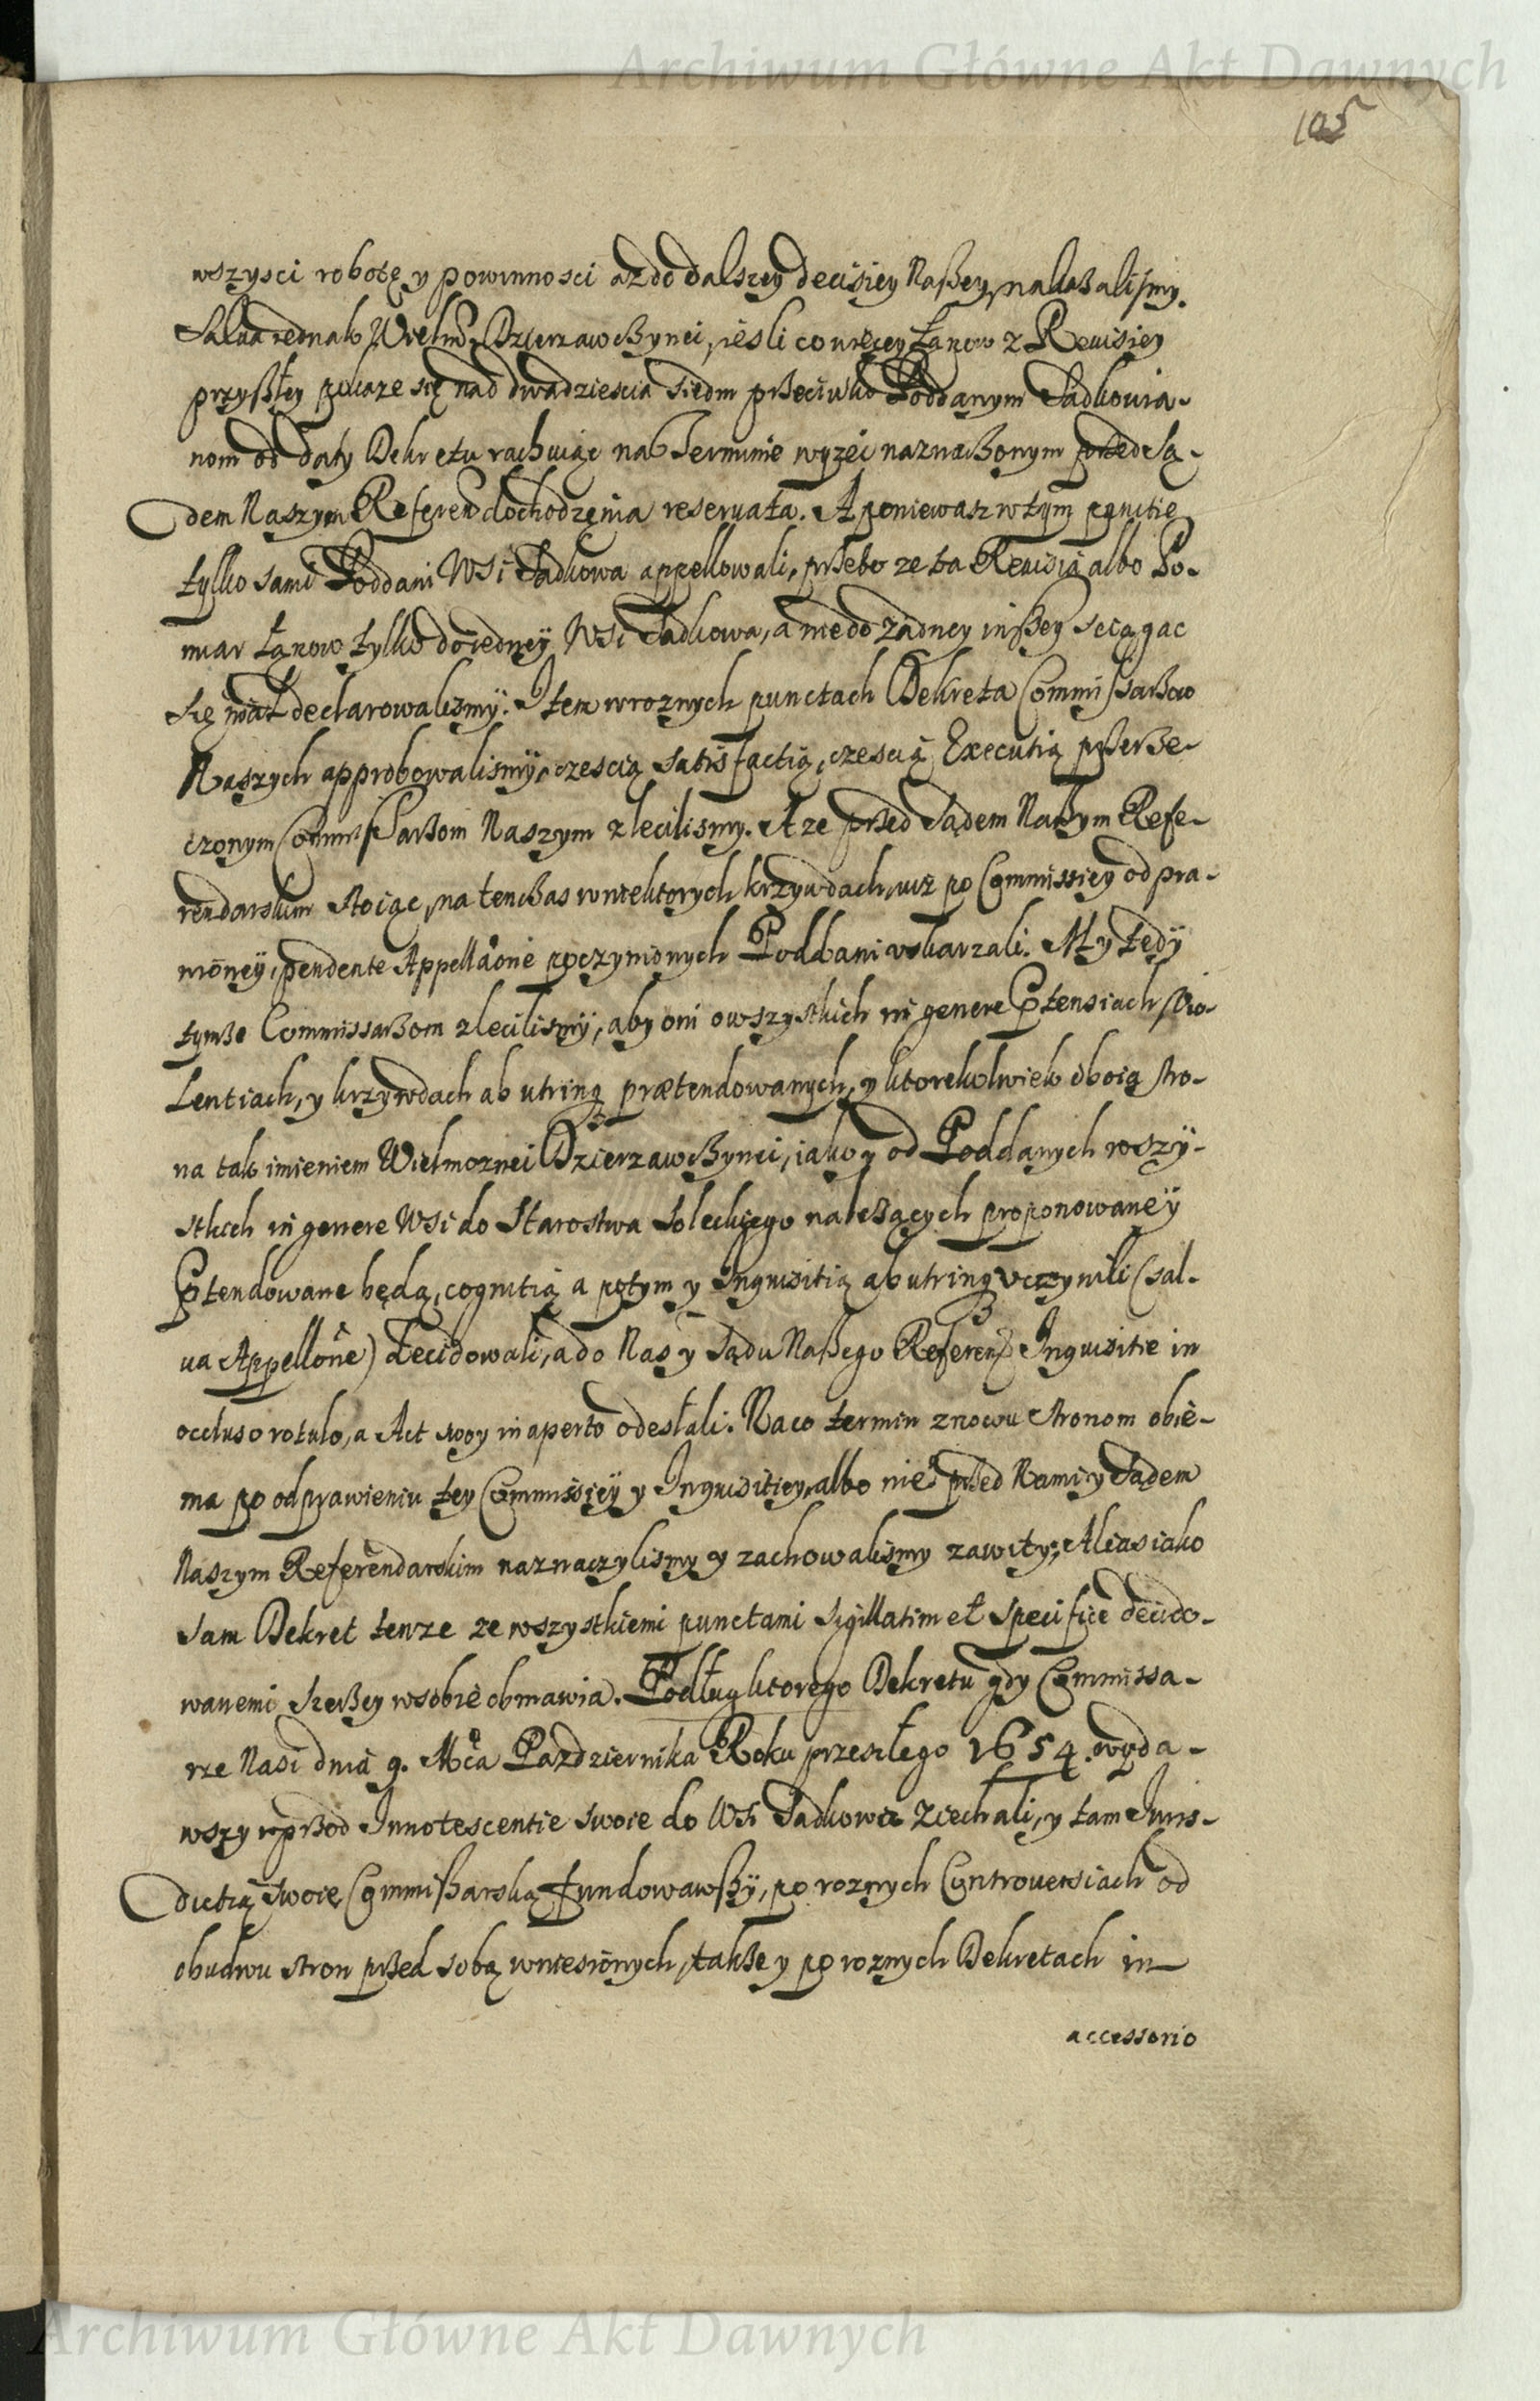 Archiwum Główne Akt Dawnych
105
wszysci robotę y powinnosci az do dalszey decisiey Naszey nakazalismy.
Salua iednak Wielm. Dzierzawczynei, iesli co więcey Łanow z Reuisiey
przyszłey pokaze się nad dwadziescia siedm przeciwko Poddanym Sadkowia-
nom od daty Dekretu rachuiąc na Terminie wyzei naznaczonym przed Są-
dem Naszym Referen dochodzęnia reseruata. A poniewasz w tym punctie
tylko sami Poddani Wsi Sadkowa appellowali, przeto ze ta Reuisia albo Po-
miar Łanow tylko do iedney Wsi Sadkowa, a nie do zadney inszey sciągac
się miał declarowalismy. Item w roznych punctach Dekreta Commissarzow
Naszych approbowalismy, czescią satisfactią, czescią Executią przerze-
czonym Commissarzom Naszym zlecilismy. A ze przed Sądem Naszym Refe-
rendarskim stoiąc, na tenczas w niektorych krzywdach, iuz po Commissiey odpra-
wioney, pendente Appellaone poczynionych Poddani uskarzali. My tedy
tymze Commissarzom zlecilismy, aby oni o wszystkich in genere Ptensiach, Vio-
lentiach, y krzywdach ab utrinq prætendowanych, y ktorekolwiek oboia stro-
na tak imieniem Wielmoznei Dzierzawczynei, iako y od Poddanych wszy-
stkich in genere Wsi do Starostwa Soleckiego nalezących proponowane y
Ptendowane będą, cognitią a potym y Inquisitią ab utrinq vczynili (sal-
ua Appellone) decidowali, a do Nas y Sądu Naszego Referen Inquisitie in
occluso rotulo, a Act swoy in aperto odesłali. Na co termin znowu stronom obie-
ma po odprawieniu tey Commissiey y Inquisitiey, albo nie przed Nami y Sądem
Naszym Referendarskim naznaczylismy y zachowalismy zawity; Alias iako
sam Dekret tenze ze wszystkiemi punctami sigillatim et specifice decido-
wanemi szerzey w sobie obmawia. Podług ktorego Dekretu gdy Commissa-
rze Nasi dnia 9. Mca Pazdziernika Roku przeszłego 1654. wyda-
wszy wprzod Innotescentie swoie do Wsi Sadkowa ziechali, y tam Iuris-
dictią swoię Commissarską fundowawszy, po roznych Controuersiach od
obudwu stron przed sobą wniesionych, takze y po roznych Dekretach in
accessorio
Archiwum Główne Akt Dawnych